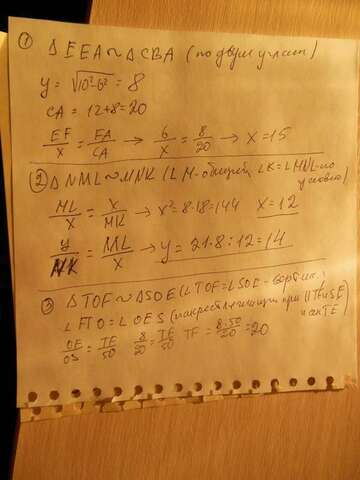 ① △FEA ~ △CBA (по двум углам)
y = √10²-6² = 8
CA = 12+8=20
EF/x = EA/CA → 6/x = 8/20 → x=15
② △NML ~ △MNK (∠M-общий, ∠K=∠MNL-по условию)
ML/x = x/MK → x²=8·18=144 x=12
y/NK = ML/x → y=21·8:12=14
③ △TOF ~ △SOE (∠TOF=∠SOE-верт-ик.
∠FTO=∠OES (накрест лежащии при ||TF и SE и сек TE)
OE/OS = TF/50 8/20 = TF/50 TF = 8·50/20 =20